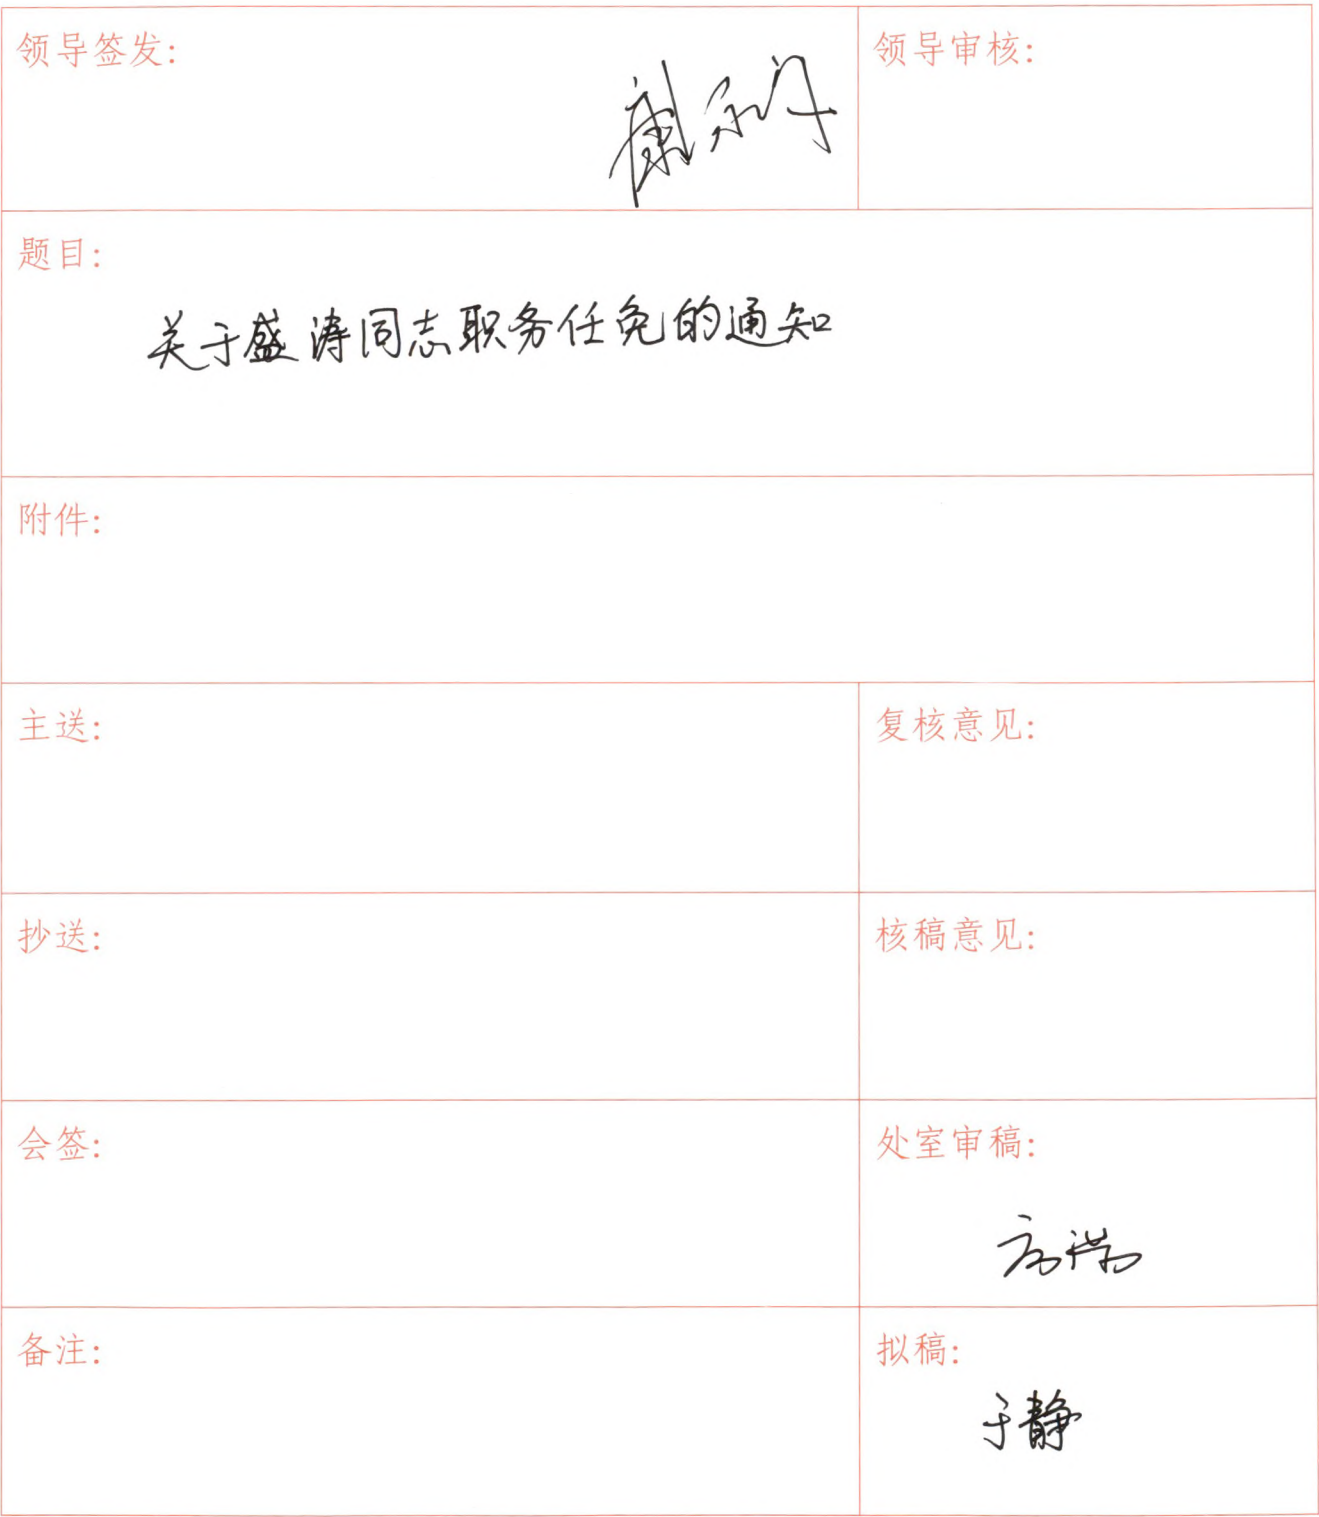 领导签发:
领导审核:
题目:
关于盛涛同志职务任免的通知
附件:
主送:
复核意见:
抄送:
核稿意见:
会签:
处室审稿:
备注:
拟稿:
于静